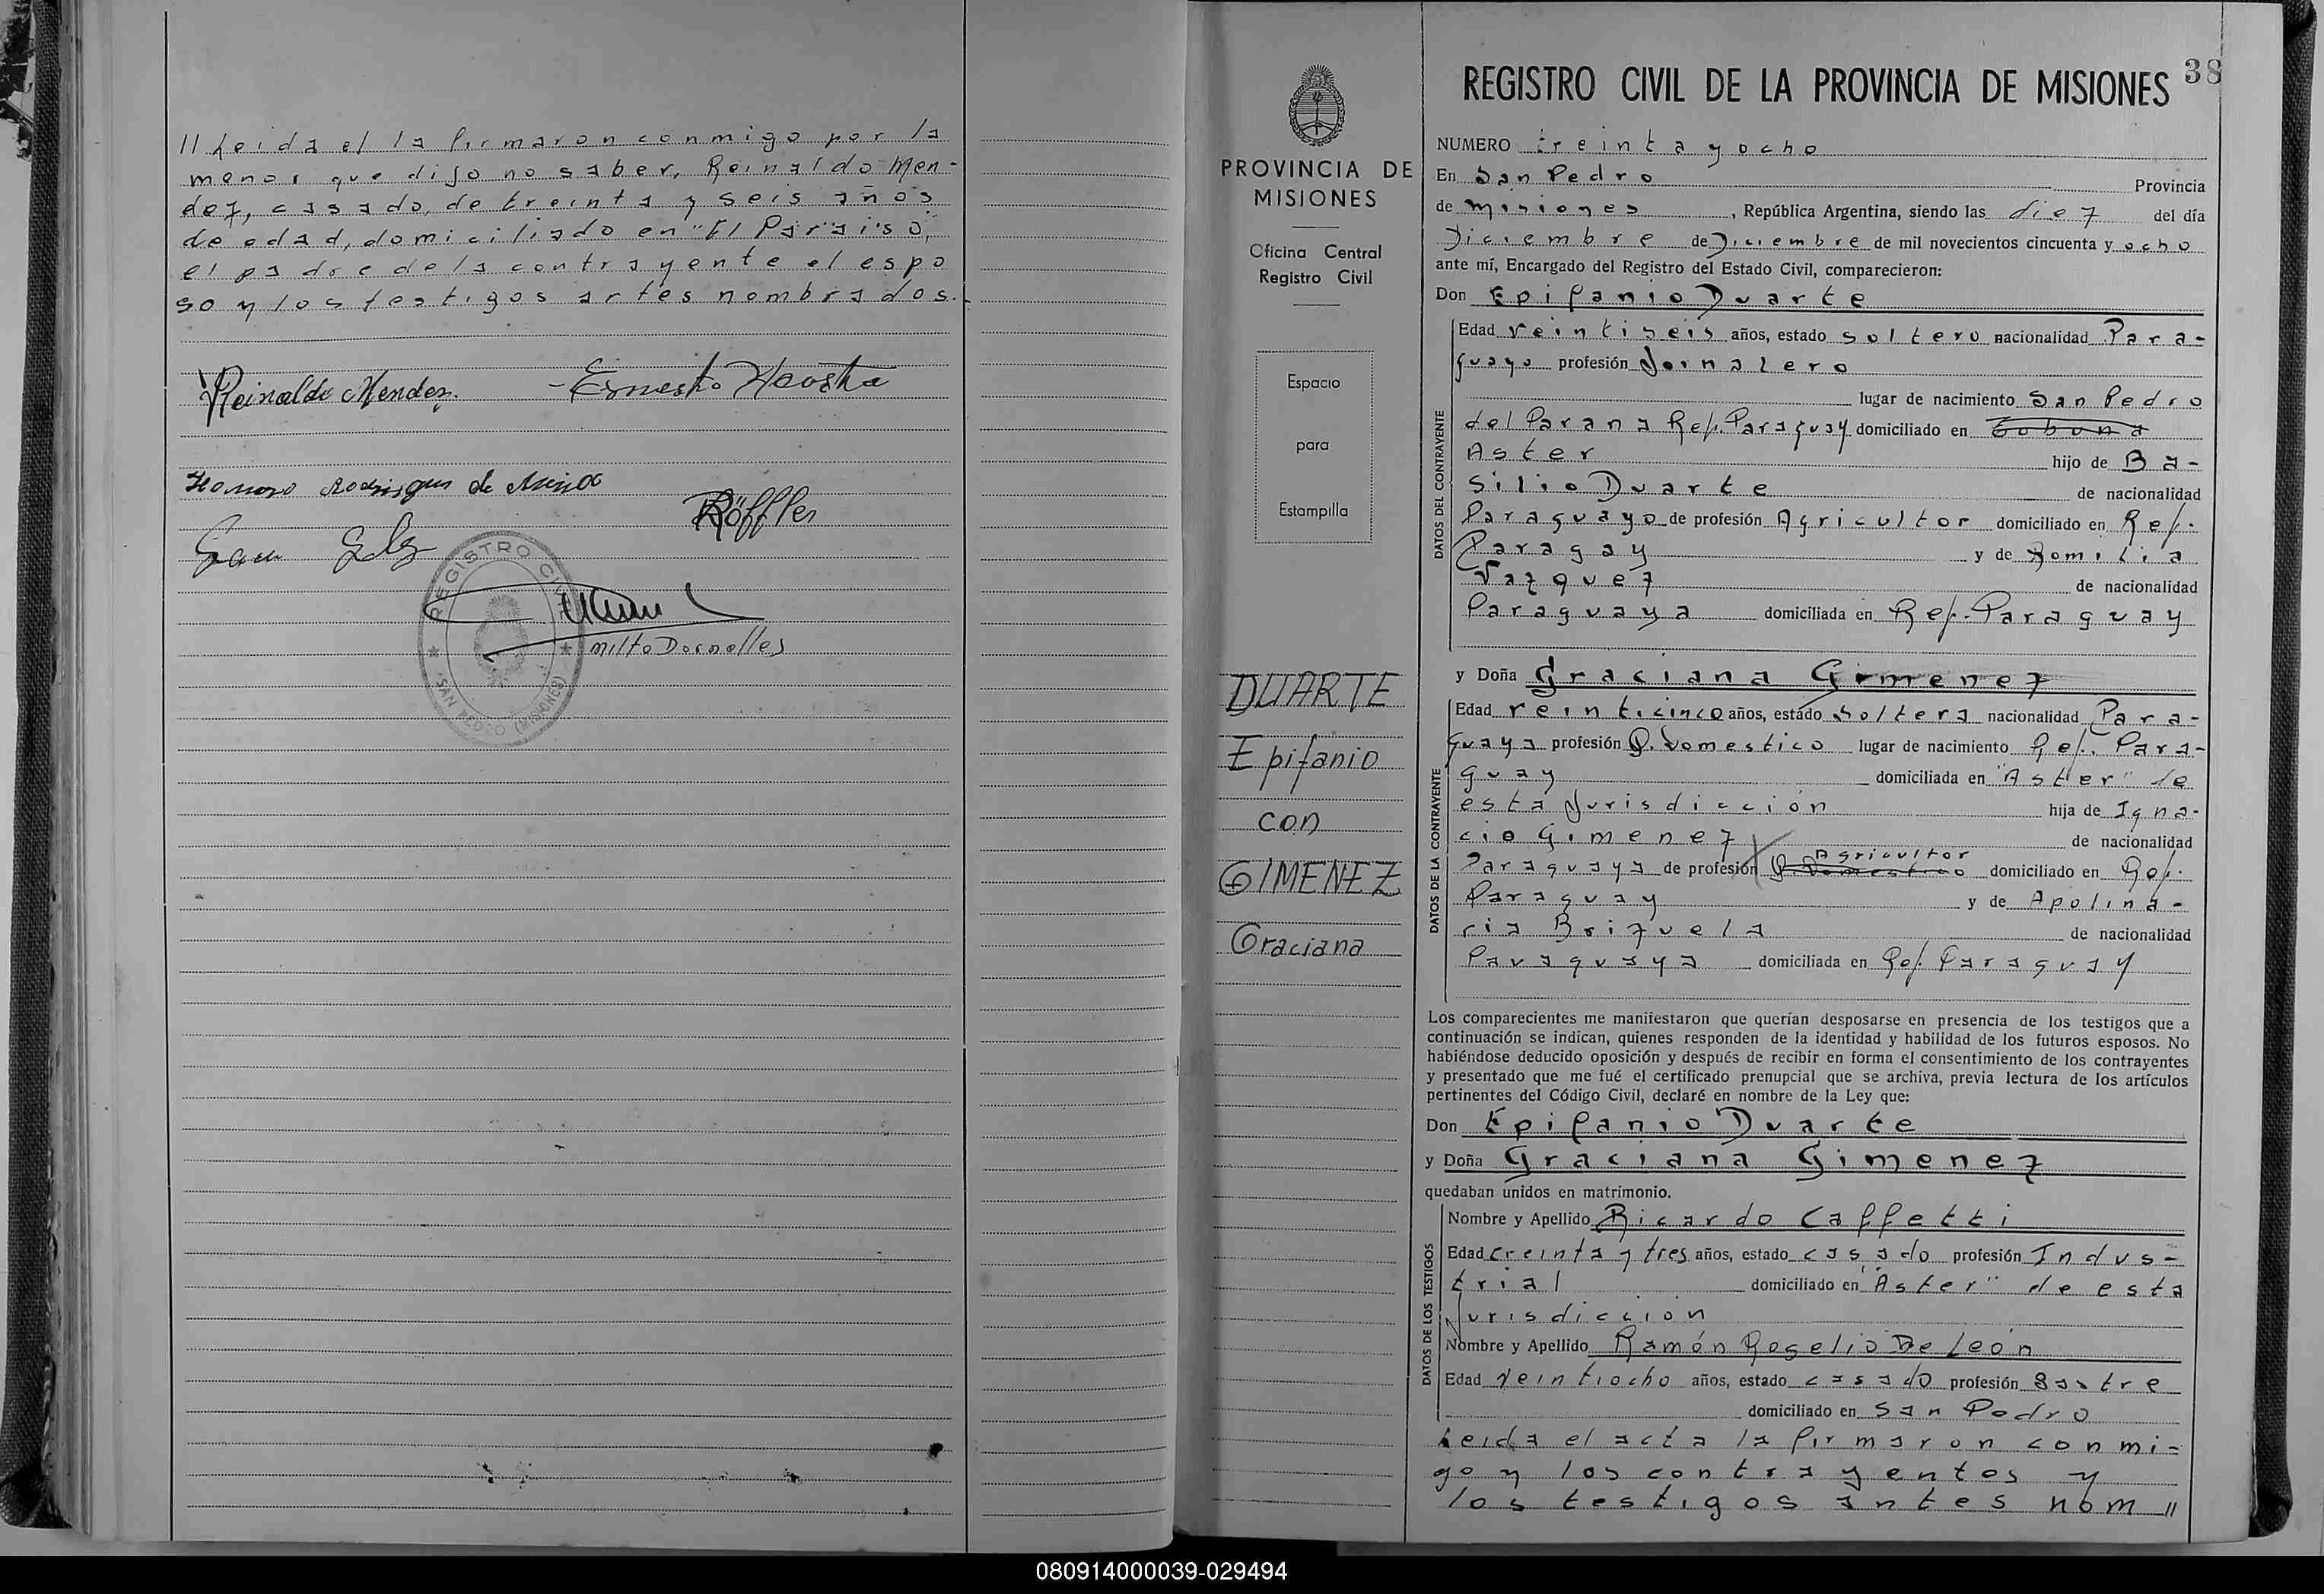 // Leida el la firmaron conmigo por la
menor que dijo no saber, Reinaldo Men-
dez, casado, de treinta y seis años
de edad, domiciliado en "El Paraiso",
el padre de la contrayente el espo
so y los testigos artes nombrados.
Reinaldo Mendez. - Ernesto Acosta
Rodrigues de
Röffler
REGISTRO CIVIL
SAN PEDRO (MISIONES)
Milto Dornelles
PROVINCIA DE
MISIONES
Oficina Central
Registro Civil
Espacio
para
Estampilla
DUARTE
Epifanio
con
GIMENEZ
Graciana
38
REGISTRO CIVIL DE LA PROVINCIA DE MISIONES
NUMERO treinta y ocho
En San Pedro Provincia
de Misiones, República Argentina, siendo las diez del día
Diciembre de Diciembre de mil novecientos cincuenta y ocho
ante mí, Encargado del Registro del Estado Civil, comparecieron:
Don Epifanio Duarte
DATOS DEL CONTRAYENTE
Edad veintiseis años, estado soltero nacionalidad Para-
guayo profesión Jornalero
lugar de nacimiento San Pedro
del Parana Rep. Paraguay domiciliado en
Aster hijo de Ba-
silio Duarte de nacionalidad
Paraguayo de profesión Agricultor domiciliado en Rep.
Paragay y de Romilia
Vazquez de nacionalidad
Paraguaya domiciliada en Rep. Paraguay
y Doña Graciana Gimenez
DATOS DE LA CONTRAYENTE
Edad veinticinco años, estado soltera nacionalidad Para-
guaya profesión Q. Domestico lugar de nacimiento Rep. Para-
guay domiciliada en "Aster" de
esta Jurisdicción hija de Igna-
cio Gimenez de nacionalidad
Paraguaya de profesión Q. Domestico Agricultor domiciliado en Rep.
Paraguay y de Apolina-
ria Brizuela de nacionalidad
Paraguaya domiciliada en Rep. Paraguay
Los comparecientes me manifestaron que querían desposarse en presencia de los testigos que a
continuación se indican, quienes responden de la identidad y habilidad de los futuros esposos. No
habiéndose deducido oposición y después de recibir en forma el consentimiento de los contrayentes
y presentado que me fué el certificado prenupcial que se archiva, previa lectura de los artículos
pertinentes del Código Civil, declaré en nombre de la Ley que:
Don Epifanio Duarte
y Doña Graciana Gimenez
quedaban unidos en matrimonio.
DATOS DE LOS TESTIGOS
Nombre y Apellido Ricardo Caffetti
Edad treinta y tres años, estado casado profesión Indus-
trial domiciliado en "Aster" de esta
Jurisdiccion
Nombre y Apellido Ramón Rogelio De León
Edad Veintiocho años, estado casado profesión Sastre
domiciliado en San Pedro
Leida el acta la firmaron conmi=
go y los contrayentes y
los testigos antes nom //
080914000039-029494